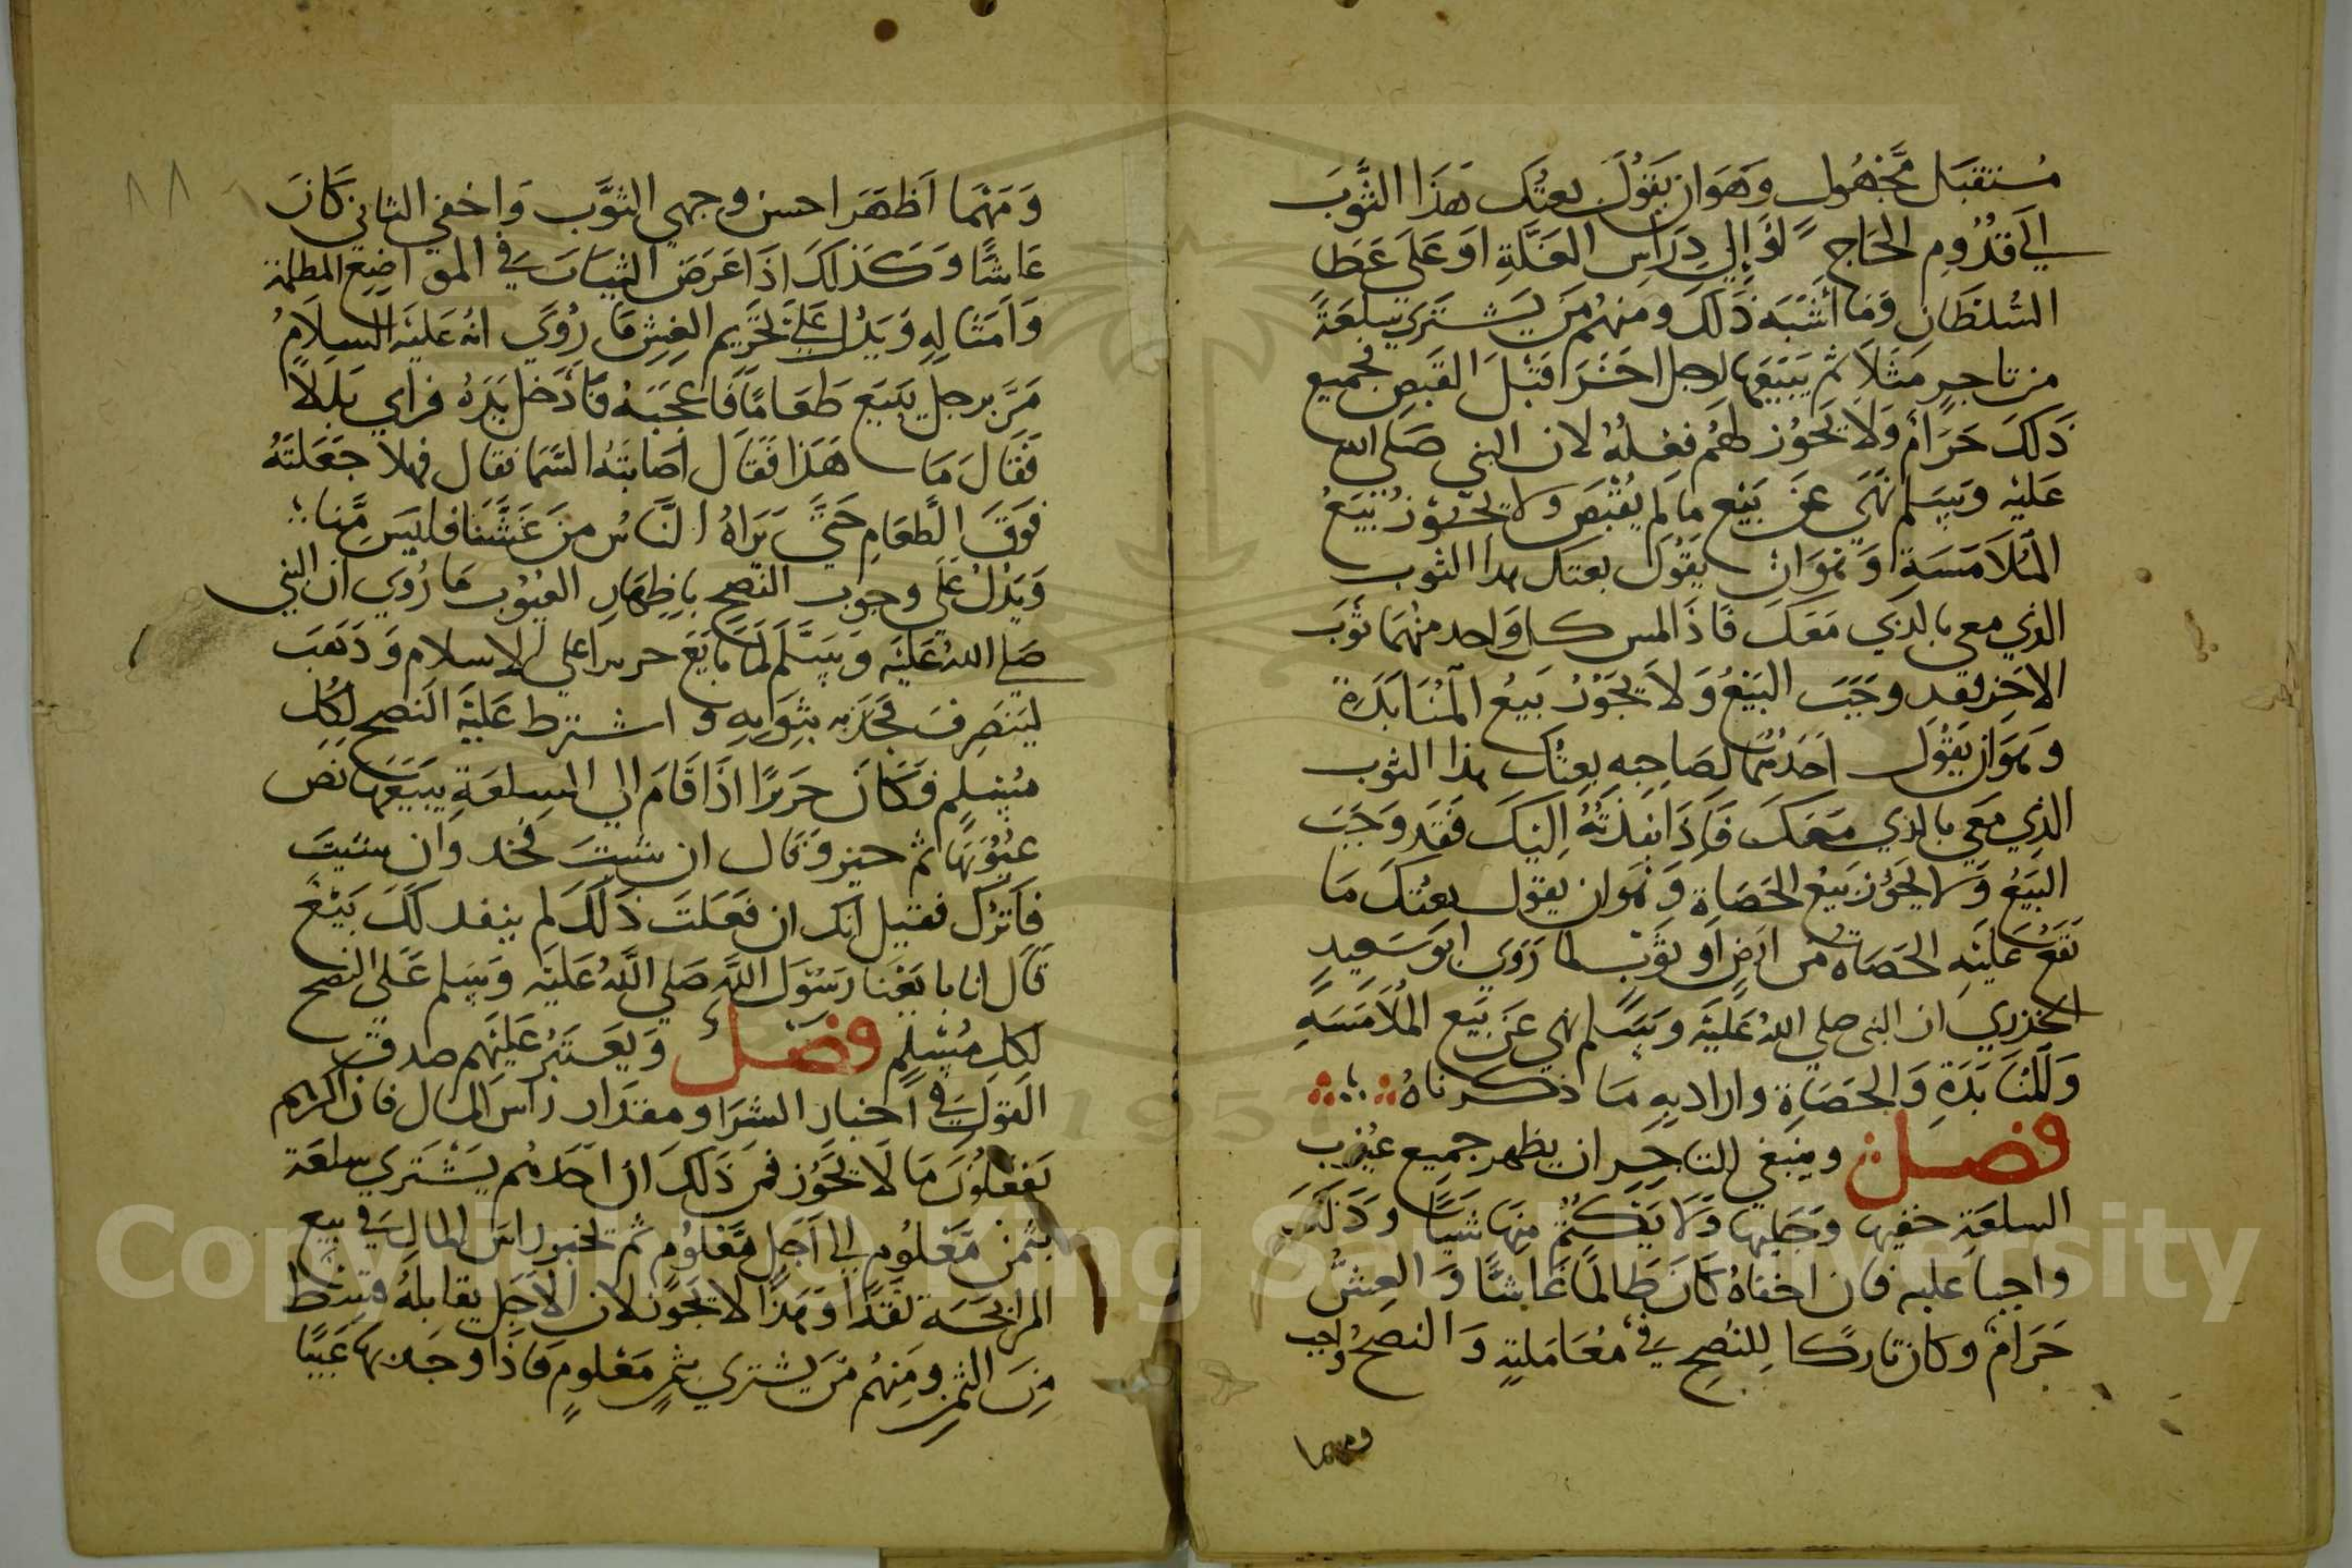 مستقبل مجهول وهو ان يقول بعتك هذا الثوب
الي قدوم الحاج او الي دراس الغلة او على عطا
السلطان وما اشبه ذلك ومنهم من يشتري سلعة
من تاجر مثلا ثم يبيعها لرجل اخر قبل القبض فجميع
ذلك حرام ولا يجوز لهم فعله لان النبي صلى الله
عليه وسلم نهي عن بيع ما لم يقبض ولا يجوز بيع
الملامسة وهو ان يقول بعتك هذا الثوب
الذي معي بالذي معك فاذا لمس كل واحد منهما ثوب
الاخر فقد وجب البيع ولا يجوز بيع المنابذة
وهو ان يقول احدهما لصاحبه بعتك هذا الثوب
الذي معي بالذي معك فاذا نبذته اليك فقد وجب
البيع ولا يجوز بيع الحصاة وهو ان يقول بعتك ما
تقع عليه الحصاة من ارض او ثوب لما روي ابو سعيد
الخذري ان النبي صلي الله عليه وسلم نهي عن بيع الملامسه
والمنابذة والحصاة واراد به ما ذكرناه
فصل وينبغي للتاجر ان يظهر جميع عيوب
السلعة خفيها وجليها ولا يكتم منها شيا وذلك
واجبا عليه فان اخفاه كان ظالما غاشا والغش
حرام وكان تاركا للنصح في معاملته والنصح واجب
ومهما
٨٨
ومهما اظهر احسن وجهي الثوب واخفي الثاني كان
غاشا وكذلك اذا عرض الثياب في المواضع المظلمة
وامثاله ويدل علي تحريم الغش ما روي انه عليه السلام
مر برجل يبيع طعاما فاعجبه فادخل يده فراي بللا
فقال ما هذا فقال اصابته السما فقال فهلا جعلته
فوق الطعام حتى يراه الناس من غشنا فليس منا
ويدل علي وجوب النصح باظهار العيوب ما روي ان النبي
صلي الله عليه وسلم لما بايع حريرا علي الاسلام وذهب
لينصرف فجذبه بثوابه واشترط عليه النصح لكل
مسلم فكان حريرا اذا قام الي السلعة يبيعها نص
عيوبها ثم خير وقال ان شيت فخد وان شيت
فاترك فقيل انك ان فعلت ذلك لم ينفد لك بيع
قال انا بايعنا رسول الله صلي الله عليه وسلم علي النصح
لكل مسلم فصل ويعتبر عليهم صدق
القول في اخبار الشرا ومقدار راس المال فان اكثرهم
يفعلون ما لا يجوز فمن ذلك ان احدهم يشتري سلعة
بثمن معلوم الي اجل معلوم ثم يخبر براس المال في بيع
المرابحة نقدا وهذا لا يجوز لان الاجل يقابله قسط
من الثمن ومنهم من يشتري بثمن معلوم فاذا وجد بها عيبا
Copyright © King Saud University
1957